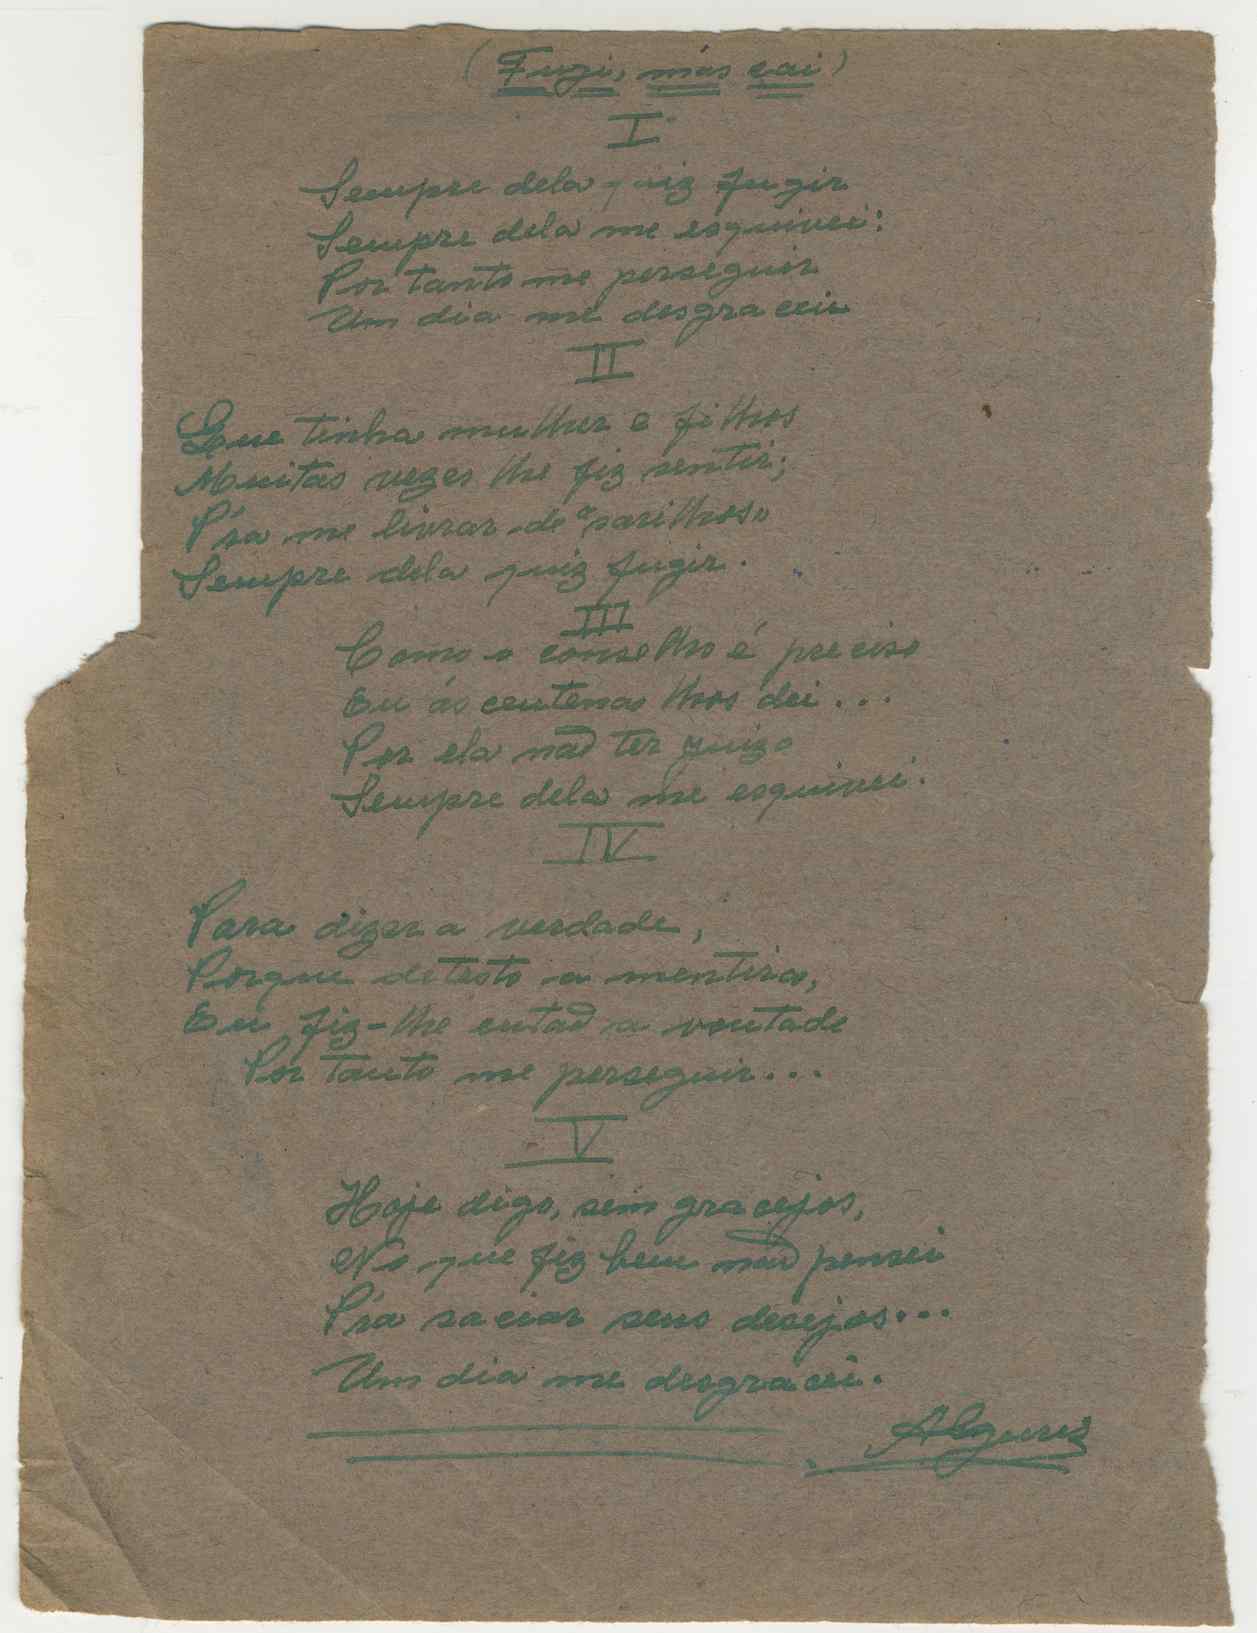 (Fugi, más caí)
I
Sempre dela quiz fugir
Sempre dela me esquivei:
Por tanto me perseguir
Um dia me desgracei.
II
Que tinha mulher e filhos
Muitas vezes lhe fiz sentir;
P'ra me livrar de "sarilhos"
Sempre dela quiz fugir.
III
Como o conselho é preciso
Eu ás centenas lhos dei...
Por ela não ter juizo
Sempre dela me esquivei.
IV
Para dizer a verdade,
Porque detesto a mentira,
Eu fiz-lhe entaõ a vontade
Por tanto me perseguir...
V
Hoje digo, sem gracejos,
No que fiz bem não pensei
P'ra saciar seus desejos...
Um dia me desgracei.